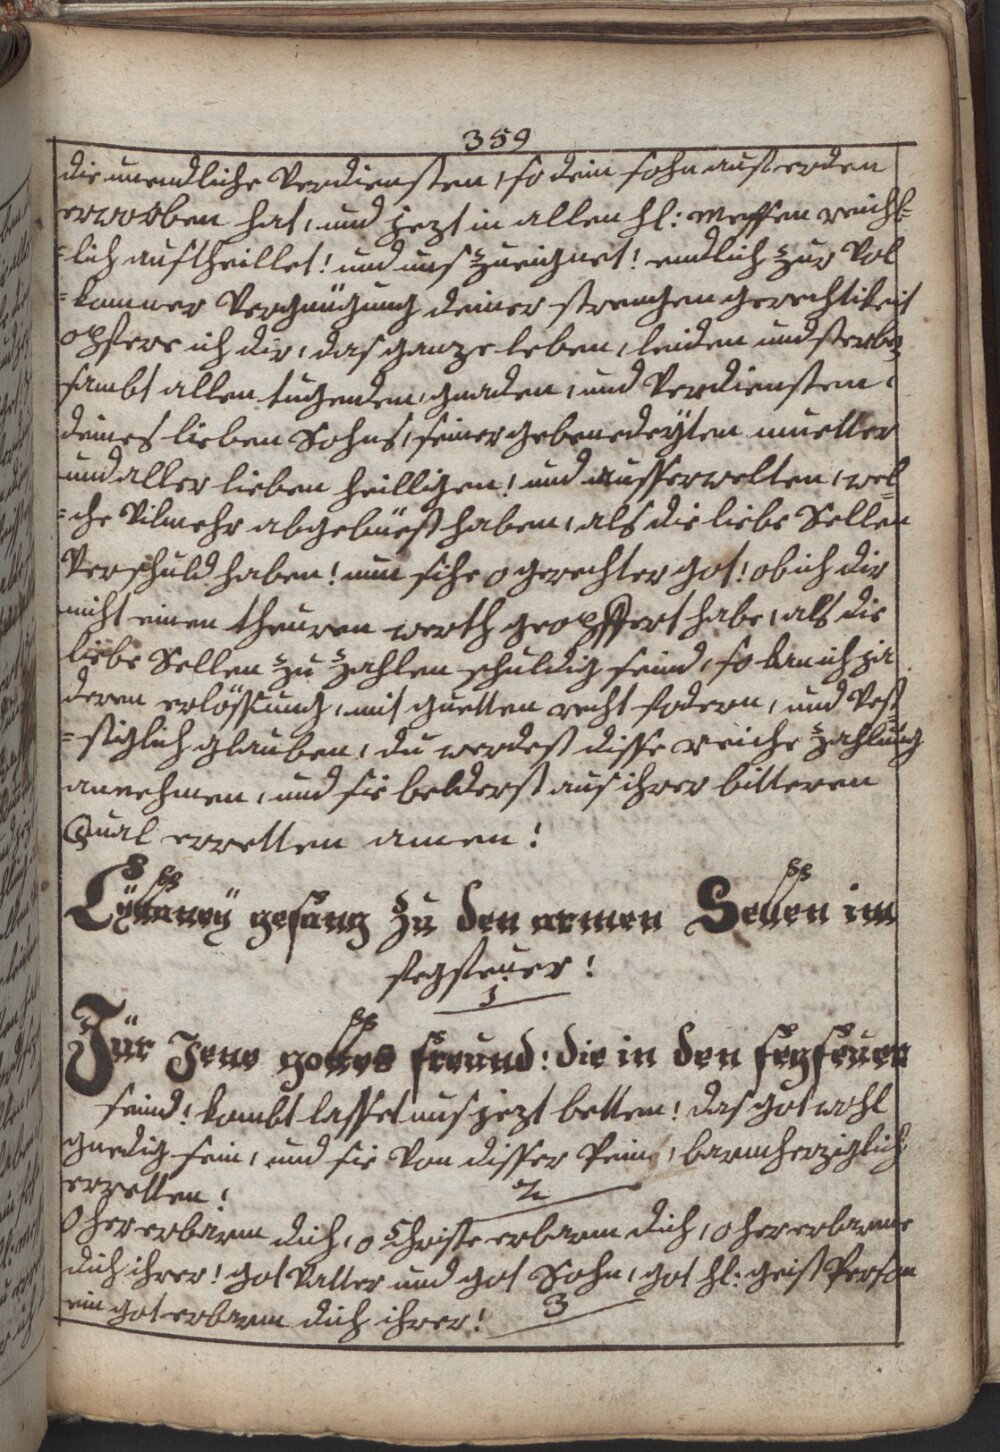 359
die unendliche Verdiensten, so dein sohn auf erden
erworben hat, und jezt in allen hl: Messen reichl=
=lich austheillet! und uns zueignet! endlich zur Vol
=komner Vergnügung deiner strengen gerechtikeit
opfere ich dir, das ganze leben, leiden und sterben
sambt allen tugenden, gnaden, und Verdiensten,
deines lieben Sohns, seiner gebenedeÿten muetter
und aller lieben heilligen! und ausserwelten, wel=
=che Vilmehr abgebüest haben, als die liebe Sellen
Verschuld haben! nun sihe o gerechter got! ob ich dir
nicht einen theuren werth geopffert habe, als die
liebe Sellen zu zahlen schuldig seind, so kan ich ja
deren erlössung, mit guetten recht fodern, und Vest
=siglich glauben, du werdest disse reiche zahlung
annehmen, und sie belderst aus ihrer bitteren
Qual erretten amen!
Lÿtaneÿ gesang zu den armen Sellen im
fegfeuer!
1
Für Jene gottes freund! die in den fegfeuer
seind! kombt lasset uns jezt betten! das got wohl
gnedig sein, und sie Von disser Pein, barmherziglich
erretten!
2
O her erbarm dich, o Christe erbarm dich, o her erbarme
dich ihrer! got Vatter und got Sohn, got hl: geist Person
ein got erbarm dich ihrer!
3